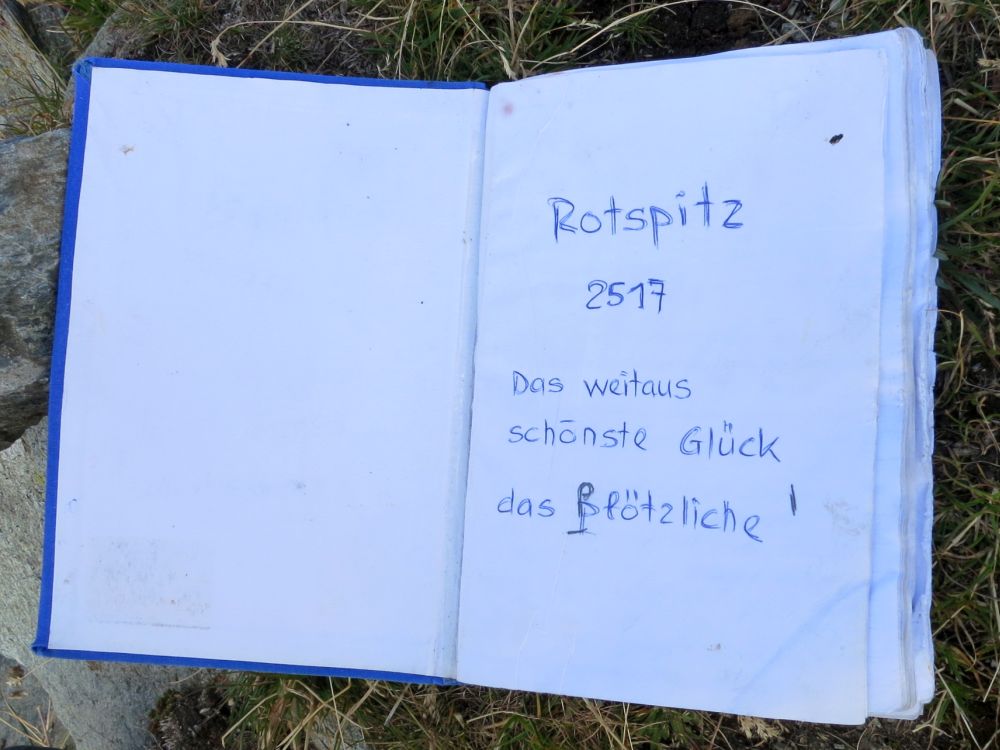 Rotspitz
2517
Das weitaus
schönste Glück
das Plötzliche